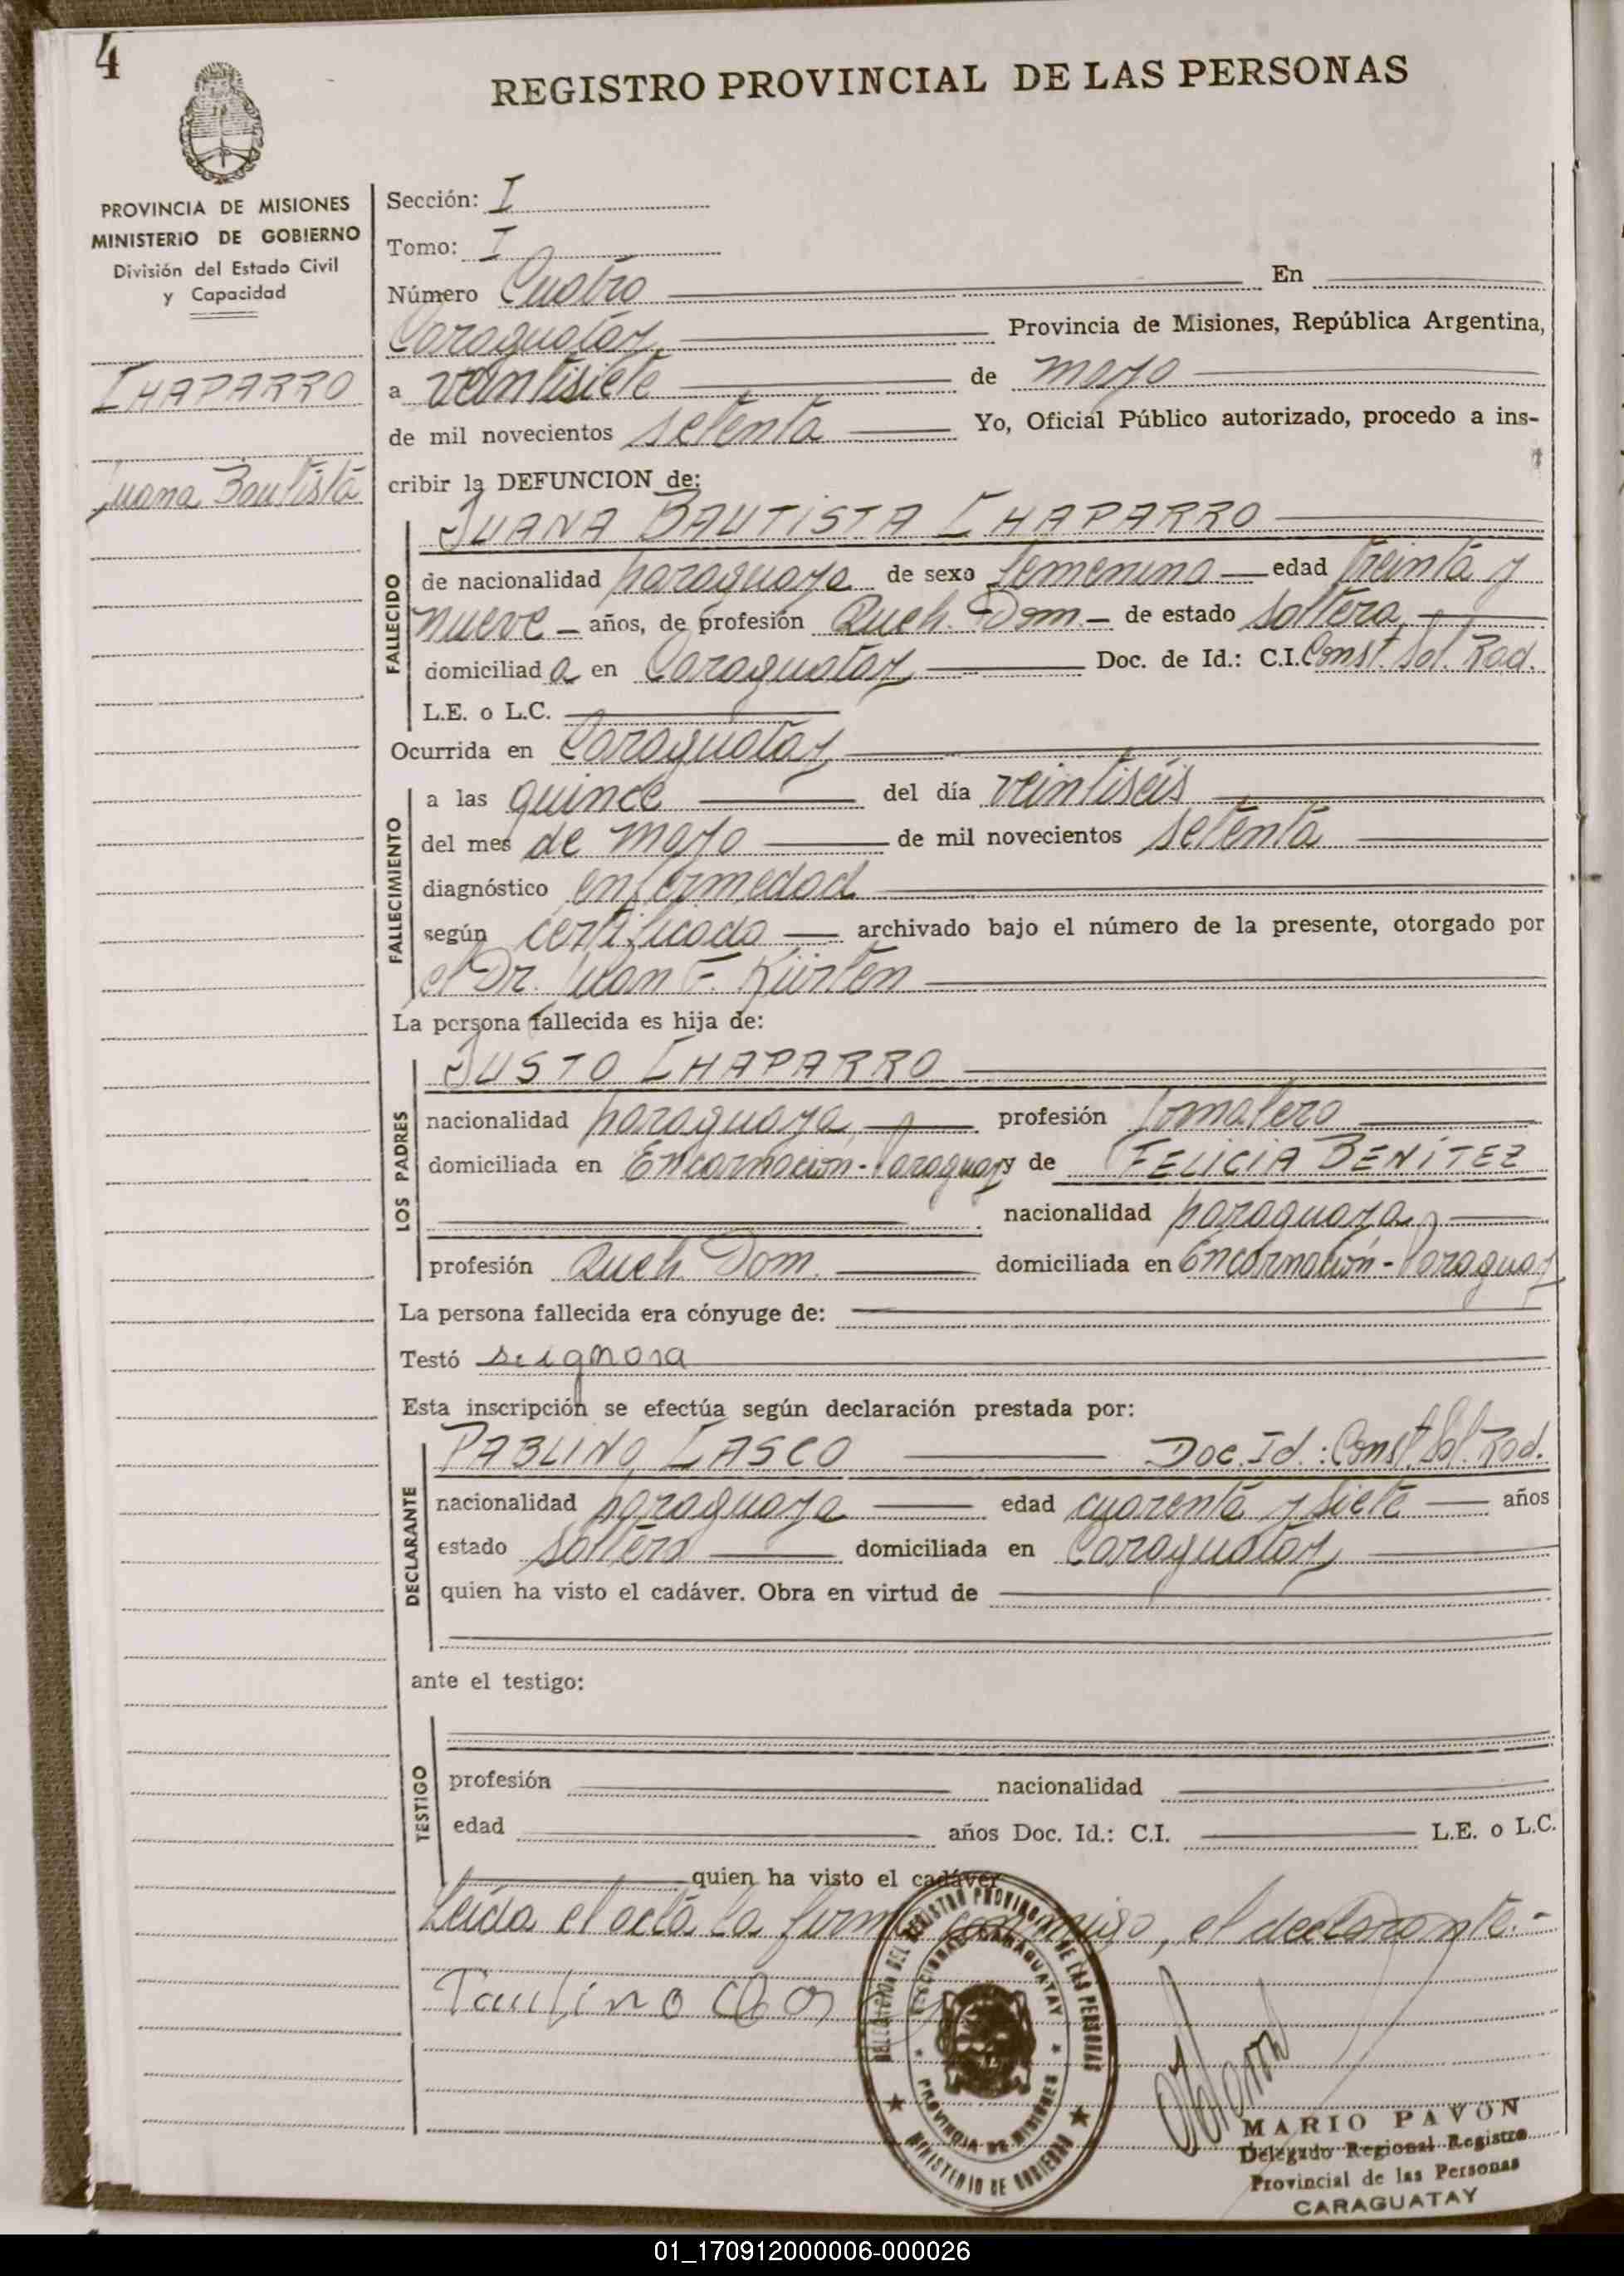 4
REGISTRO PROVINCIAL DE LAS PERSONAS
PROVINCIA DE MISIONES
MINISTERIO DE GOBIERNO
División del Estado Civil
y Capacidad
CHAPARRO
Juana Bautista
Sección: I
Tomo: I
Número Cuatro En
Caraguatay Provincia de Misiones, República Argentina,
a veintisiete de mayo
de mil novecientos setenta Yo, Oficial Público autorizado, procedo a ins-
cribir la DEFUNCION de:
FALLECIDO
JUANA BAUTISTA CHAPARRO
de nacionalidad paraguaya de sexo femenino edad treinta y
nueve años, de profesión Queh. Dom. de estado soltera
domiciliad a en Caraguatay Doc. de Id.: C.I. Const. Sol. Rad.
L.E. o L.C.
Ocurrida en Caraguatay
FALLECIMIENTO
a las quince del día veintiséis
del mes de mayo de mil novecientos setenta
diagnóstico enfermedad
según certificado archivado bajo el número de la presente, otorgado por
el Dr. Juan F. Kürten
La persona fallecida es hija de:
LOS PADRES
JUSTO CHAPARRO
nacionalidad paraguaya profesión Jornalero
domiciliada en Encarnación-Paraguay y de FELICIA BENÍTEZ
nacionalidad paraguaya
profesión Queh. Dom. domiciliada en Encarnación-Paraguay
La persona fallecida era cónyuge de:
Testó se ignora
Esta inscripción se efectúa según declaración prestada por:
DECLARANTE
PABLINO CASCO Doc. Id.: Const. Sol. Rad.
nacionalidad paraguaya edad cuarenta y siete años
estado soltero domiciliada en Caraguatay
quien ha visto el cadáver. Obra en virtud de
ante el testigo:
TESTIGO
profesión nacionalidad
edad años Doc. Id.: C.I. L.E. o L.C.
quien ha visto el cadáver
Leída el acta la firma conmigo, el declarante.-
DELEGACION DEL REGISTRO PROVINCIAL DE LAS PERSONAS
SECCIONAL CARAGUATAY
PROVINCIA DE MISIONES
MINISTERIO DE GOBIERNO
MARIO PAVON
Delegado Regional Registro
Provincial de las Personas
CARAGUATAY
01_170912000006-000026